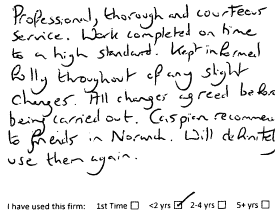 Professional, thorough and courteous
service. Work completed on time
to a high standard. Kept informed
fully throughout of any slight
changes. All changes agreed before
being carried out. Caspian recommen
to friends in Norwich. Will definitel
use them again.
I have used this firm: 1st Time ☐ <2 yrs ☑ 2-4 yrs ☐ 5+ yrs ☐